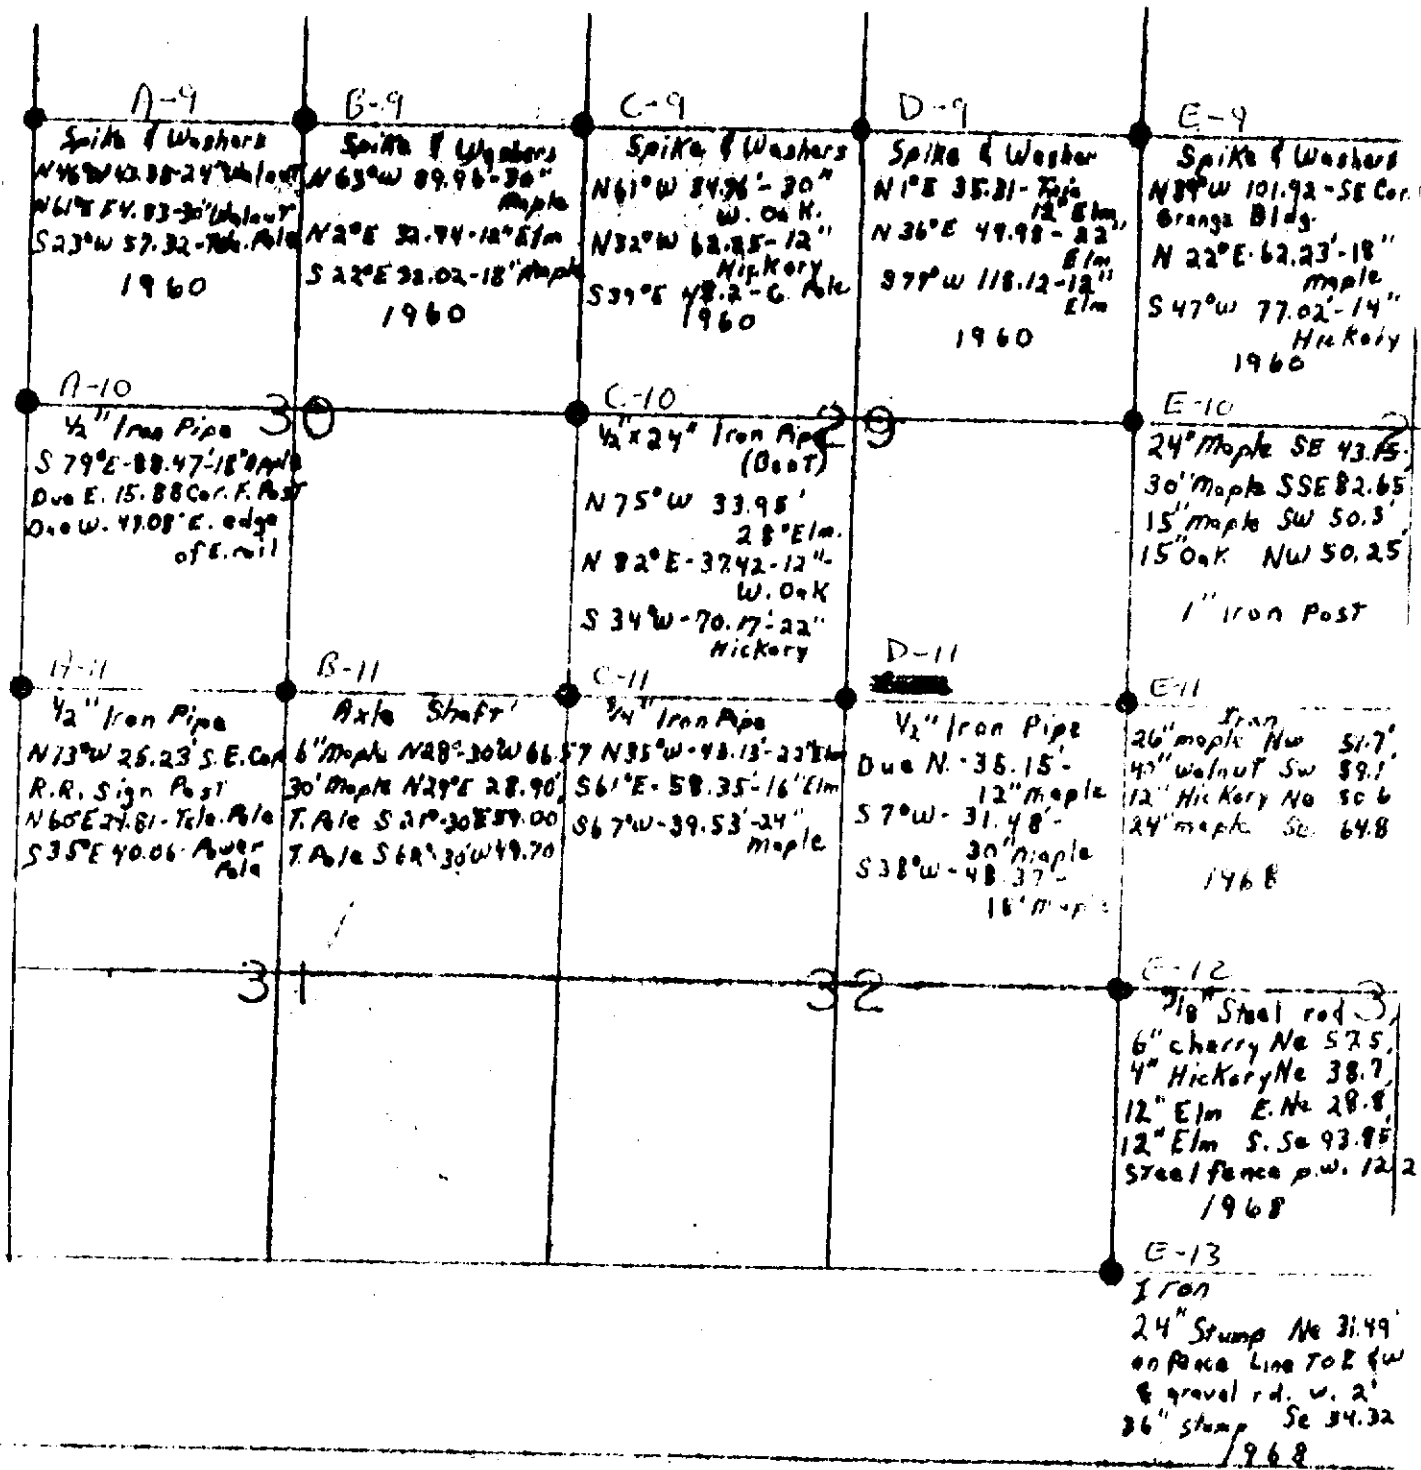 A-9
Spike & Washers
N46°W 43.38-24" Walnut
N61°E 54.83-30" Walnut
S23°W 57.32-Tele. Pole
1960
B-9
Spike & Washers
N63°W 89.96-30"
Maple
N2°E 32.94-12" Elm
S22°E 32.02-18" Maple
1960
C-9
Spike & Washers
N61°W 84.96'-30"
W. Oak.
N32°W 62.85-12"
Hickory
S39°E 48.2-C. Pole
1960
D-9
Spike & Washer
N1°E 35.31-
12" Elm
N36°E 49.98-22"
Elm
S79°W 118.12-12"
Elm
1960
E-9
Spike & Washers
N89°W 101.92-SE Cor.
Grange Bldg.
N 22°E-62.23'-18"
maple
S 47°W 77.02'-14"
Hickory
1960
A-10
1/2" Iron Pipe
S 79°E-88.47'-18" Apple
Due E. 15.88 Cor. F. Post
Due W. 49.08' E. edge
of E. rail
30
C-10
1/2" x 24" Iron Pipe
(Bent)
N 75°W 33.95'
28" Elm.
N 82°E-37.42-12"-
W. Oak
S 34°W-70.17'-22"
Hickory
29
E-10
24" Maple SE 43.15,
30" Maple SSE 82.65
15" maple SW 50.3'
15" Oak NW 50.25'
1" Iron Post
2
A-11
1/2" Iron Pipe
N73°W 25.23' S.E. Cor
R.R. Sign Post
N60°E 24.81-Tele. Pole
S35°E 40.06-Power
Pole
B-11
Axle Shaft
6" Maple N28°-30'W 66.57
30" Maple N29°E 28.90'
T. Pole S21°-30'E 59.00
T. Pole S62°-30'W 49.70
C-11
3/4" Iron Pipe
N35°W-43.13'-22" Elm
S61°E-58.35-16" Elm
S67°W-39.53'-24"
Maple
D-11
1/2" Iron Pipe
Due N.-35.15'-
12" maple
S7°W-31.48'-
30" maple
S38°W-48.37'-
18" maple
E-11
Iron
26" maple Nw 51.7'
40" walnut Sw 59.1'
12" Hickory Ne 50.6
24" maple Se 64.8
1968
31
32
E-12
5/8" Steel rod
3
6" cherry Ne 57.5,
4" Hickory Ne 38.7,
12" Elm E. Ne 28.8,
12" Elm S. Se 93.85
Steel fence p. w. 12.2
1968
E-13
Iron
24" Stump Ne 31.49'
on fence Line To E & w
& gravel rd. w. 2'
36" Stump Se 34.32
1968